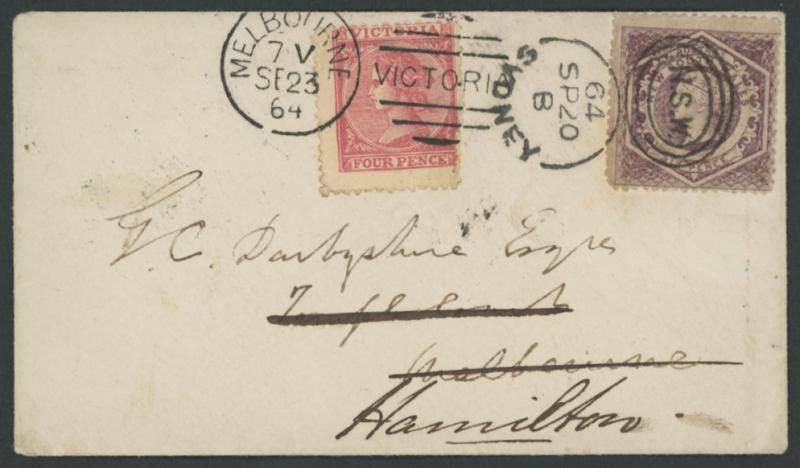 MELBOURNE
7 V
SE 23
64
VICTORIA
VICTORIA
FOUR PENCE
SYDNEY
64
SP 20
B
N.S.W.
NEW SOUTH WALES
PENCE
G C. Darbyshire Esqre
Melbourne
Hamilton.